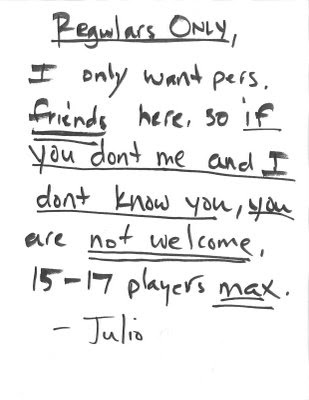 Regulars ONLY,
I only want pers.
friends here, so if
you dont me and I
dont know you, you
are not welcome,
15-17 players max.
- Julio